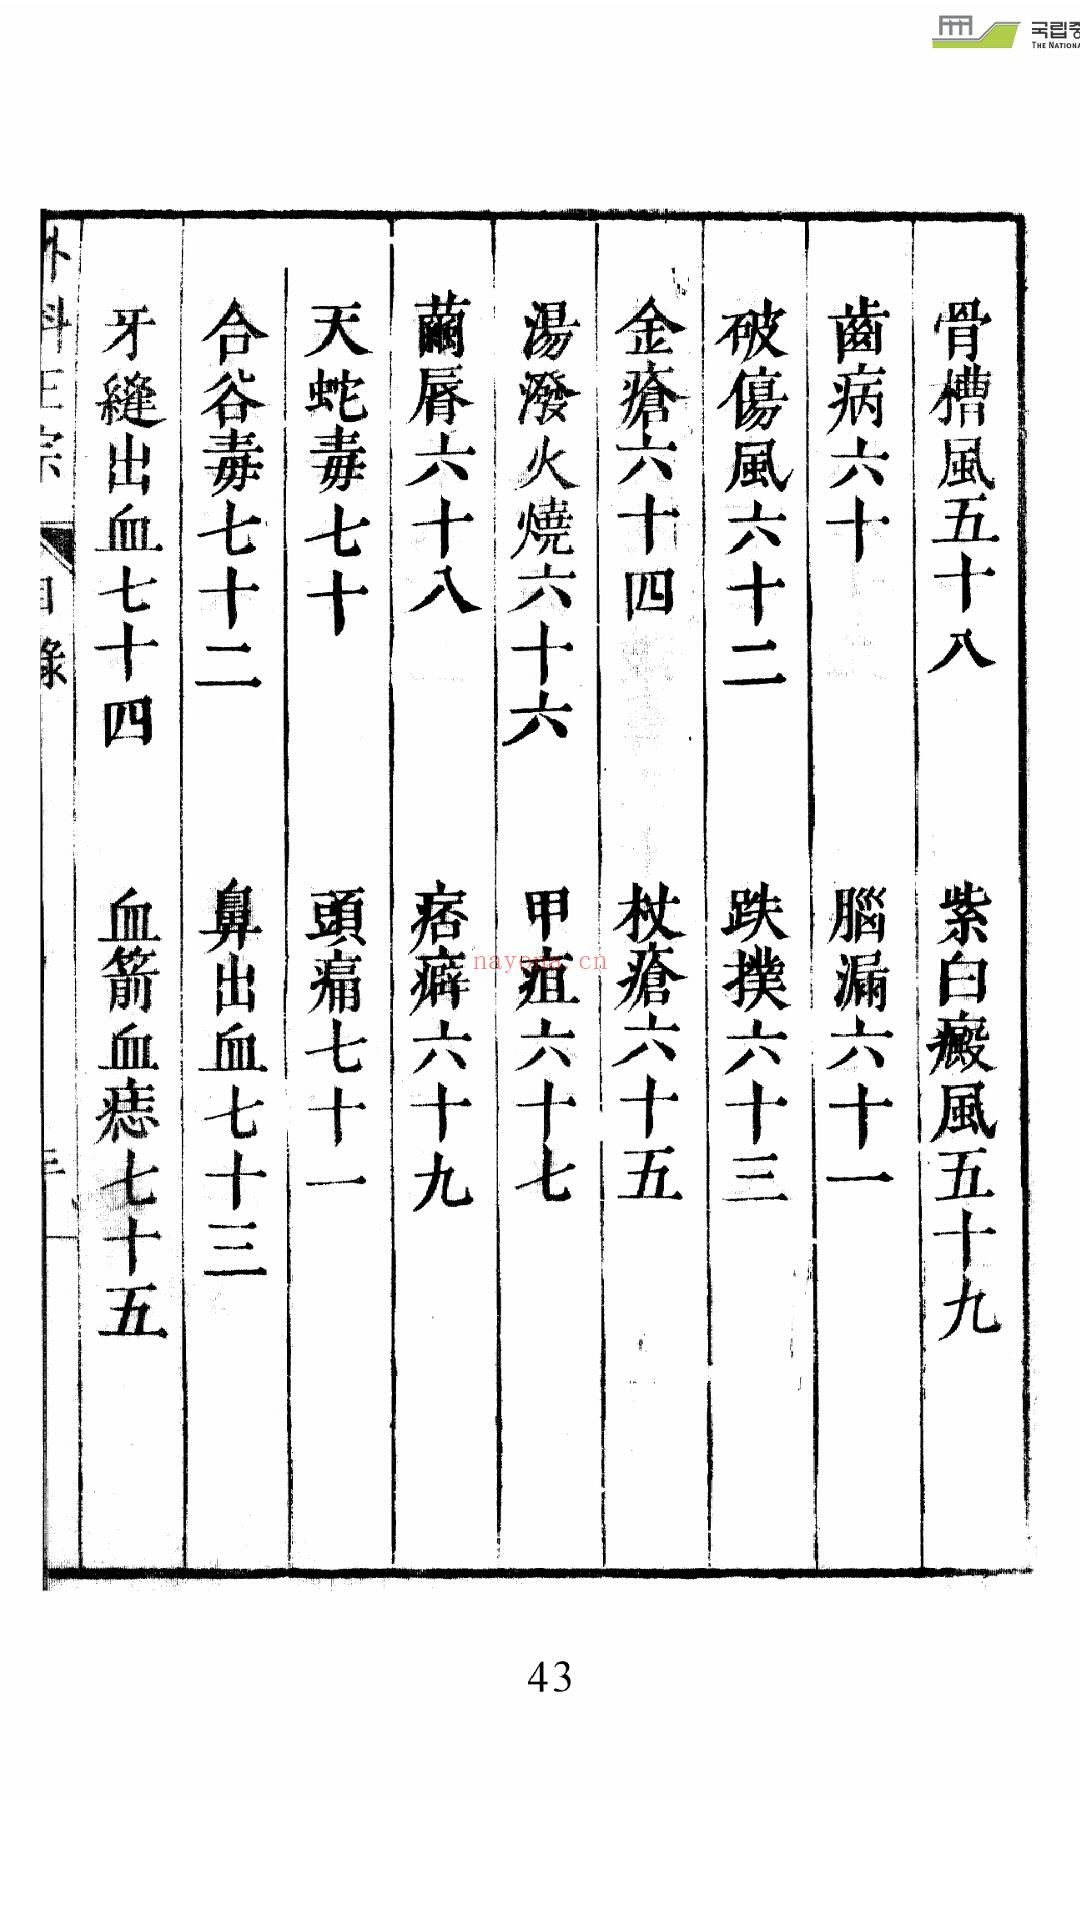 국립중
THE NATIONA
骨槽風五十八
紫白癜風五十九
齒病六十
腦漏六十一
破傷風六十二
跌撲六十三
金瘡六十四
杖瘡六十五
湯潑火燒六十六
甲疽六十七
繭唇六十八
痞癖六十九
天蛇毒七十
頭痛七十一
合谷毒七十二
鼻出血七十三
牙縫出血七十四
血箭血痣七十五
外科正宗
目錄
三
nayona.cn
43